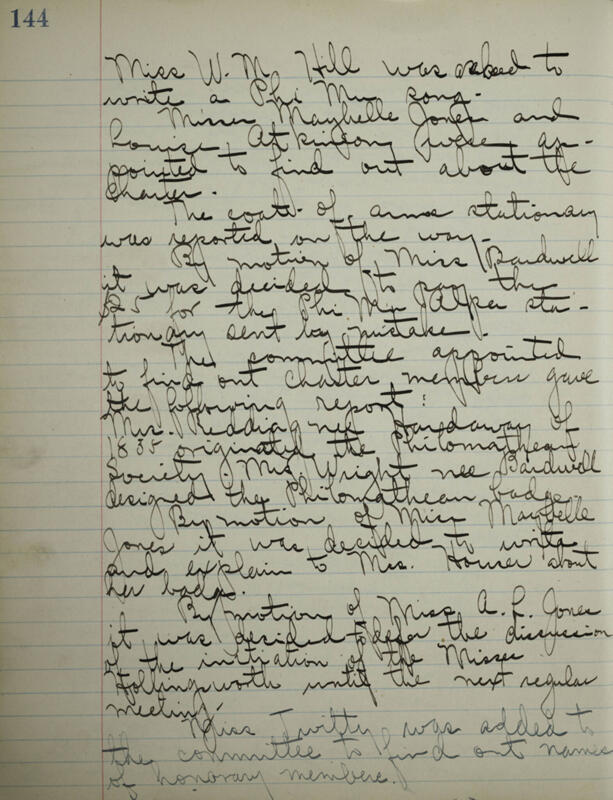 144
Miss W. M. Hill was asked to
write a Phi Mu song.
Misses Maybelle Jones and
Louise Atkinson were ap-
pointed to find out about the
Charter.
The coat-of-arms stationary
was reported on the way.
By motion of Miss Bardwell
it was decided to pay the
$25 for the Phi Mu Alpha sta-
tionary sent by mistake.
The committee appointed
to find out charter members gave
the following report:
Mrs. Redding nee Hardaway of
1835 originated the Philomathean
Society. Mrs. Wright nee Bardwell
designed the Philomathean badge.
By motion of Miss Maybelle
Jones it was decided to write
and explain to Mrs. Houser about
her badge.
By motion of Miss A. L. Jones
it was decided to defer the discussion
of the initiation of the Misses
Hollingsworth until the next regular
meeting.
Miss Twitty was added to
the committee to find out names
of honorary members.